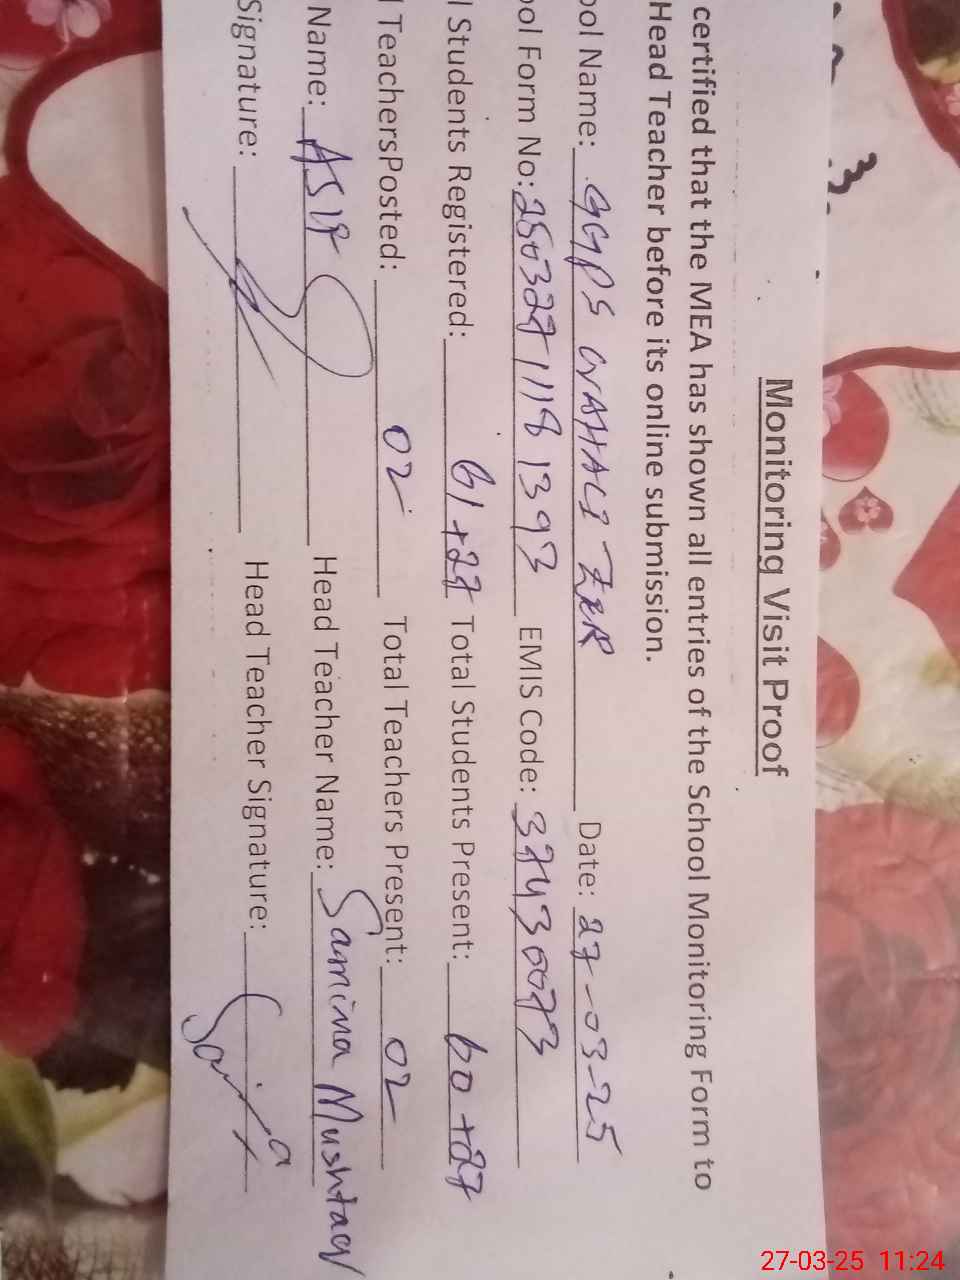 Monitoring Visit Proof
certified that the MEA has shown all entries of the School Monitoring Form to
Head Teacher before its online submission.
ool Name: GGPS WAHALI ZER Date: 27-03-25
ool Form No: 25032711181393 EMIS Code: 37430073
l Students Registered: 61+27 Total Students Present: 60+27
l TeachersPosted: 02 Total Teachers Present: 02
Name: ASIF Head Teacher Name: Samina Mushtaq
Signature: Head Teacher Signature:
27-03-25 11:24